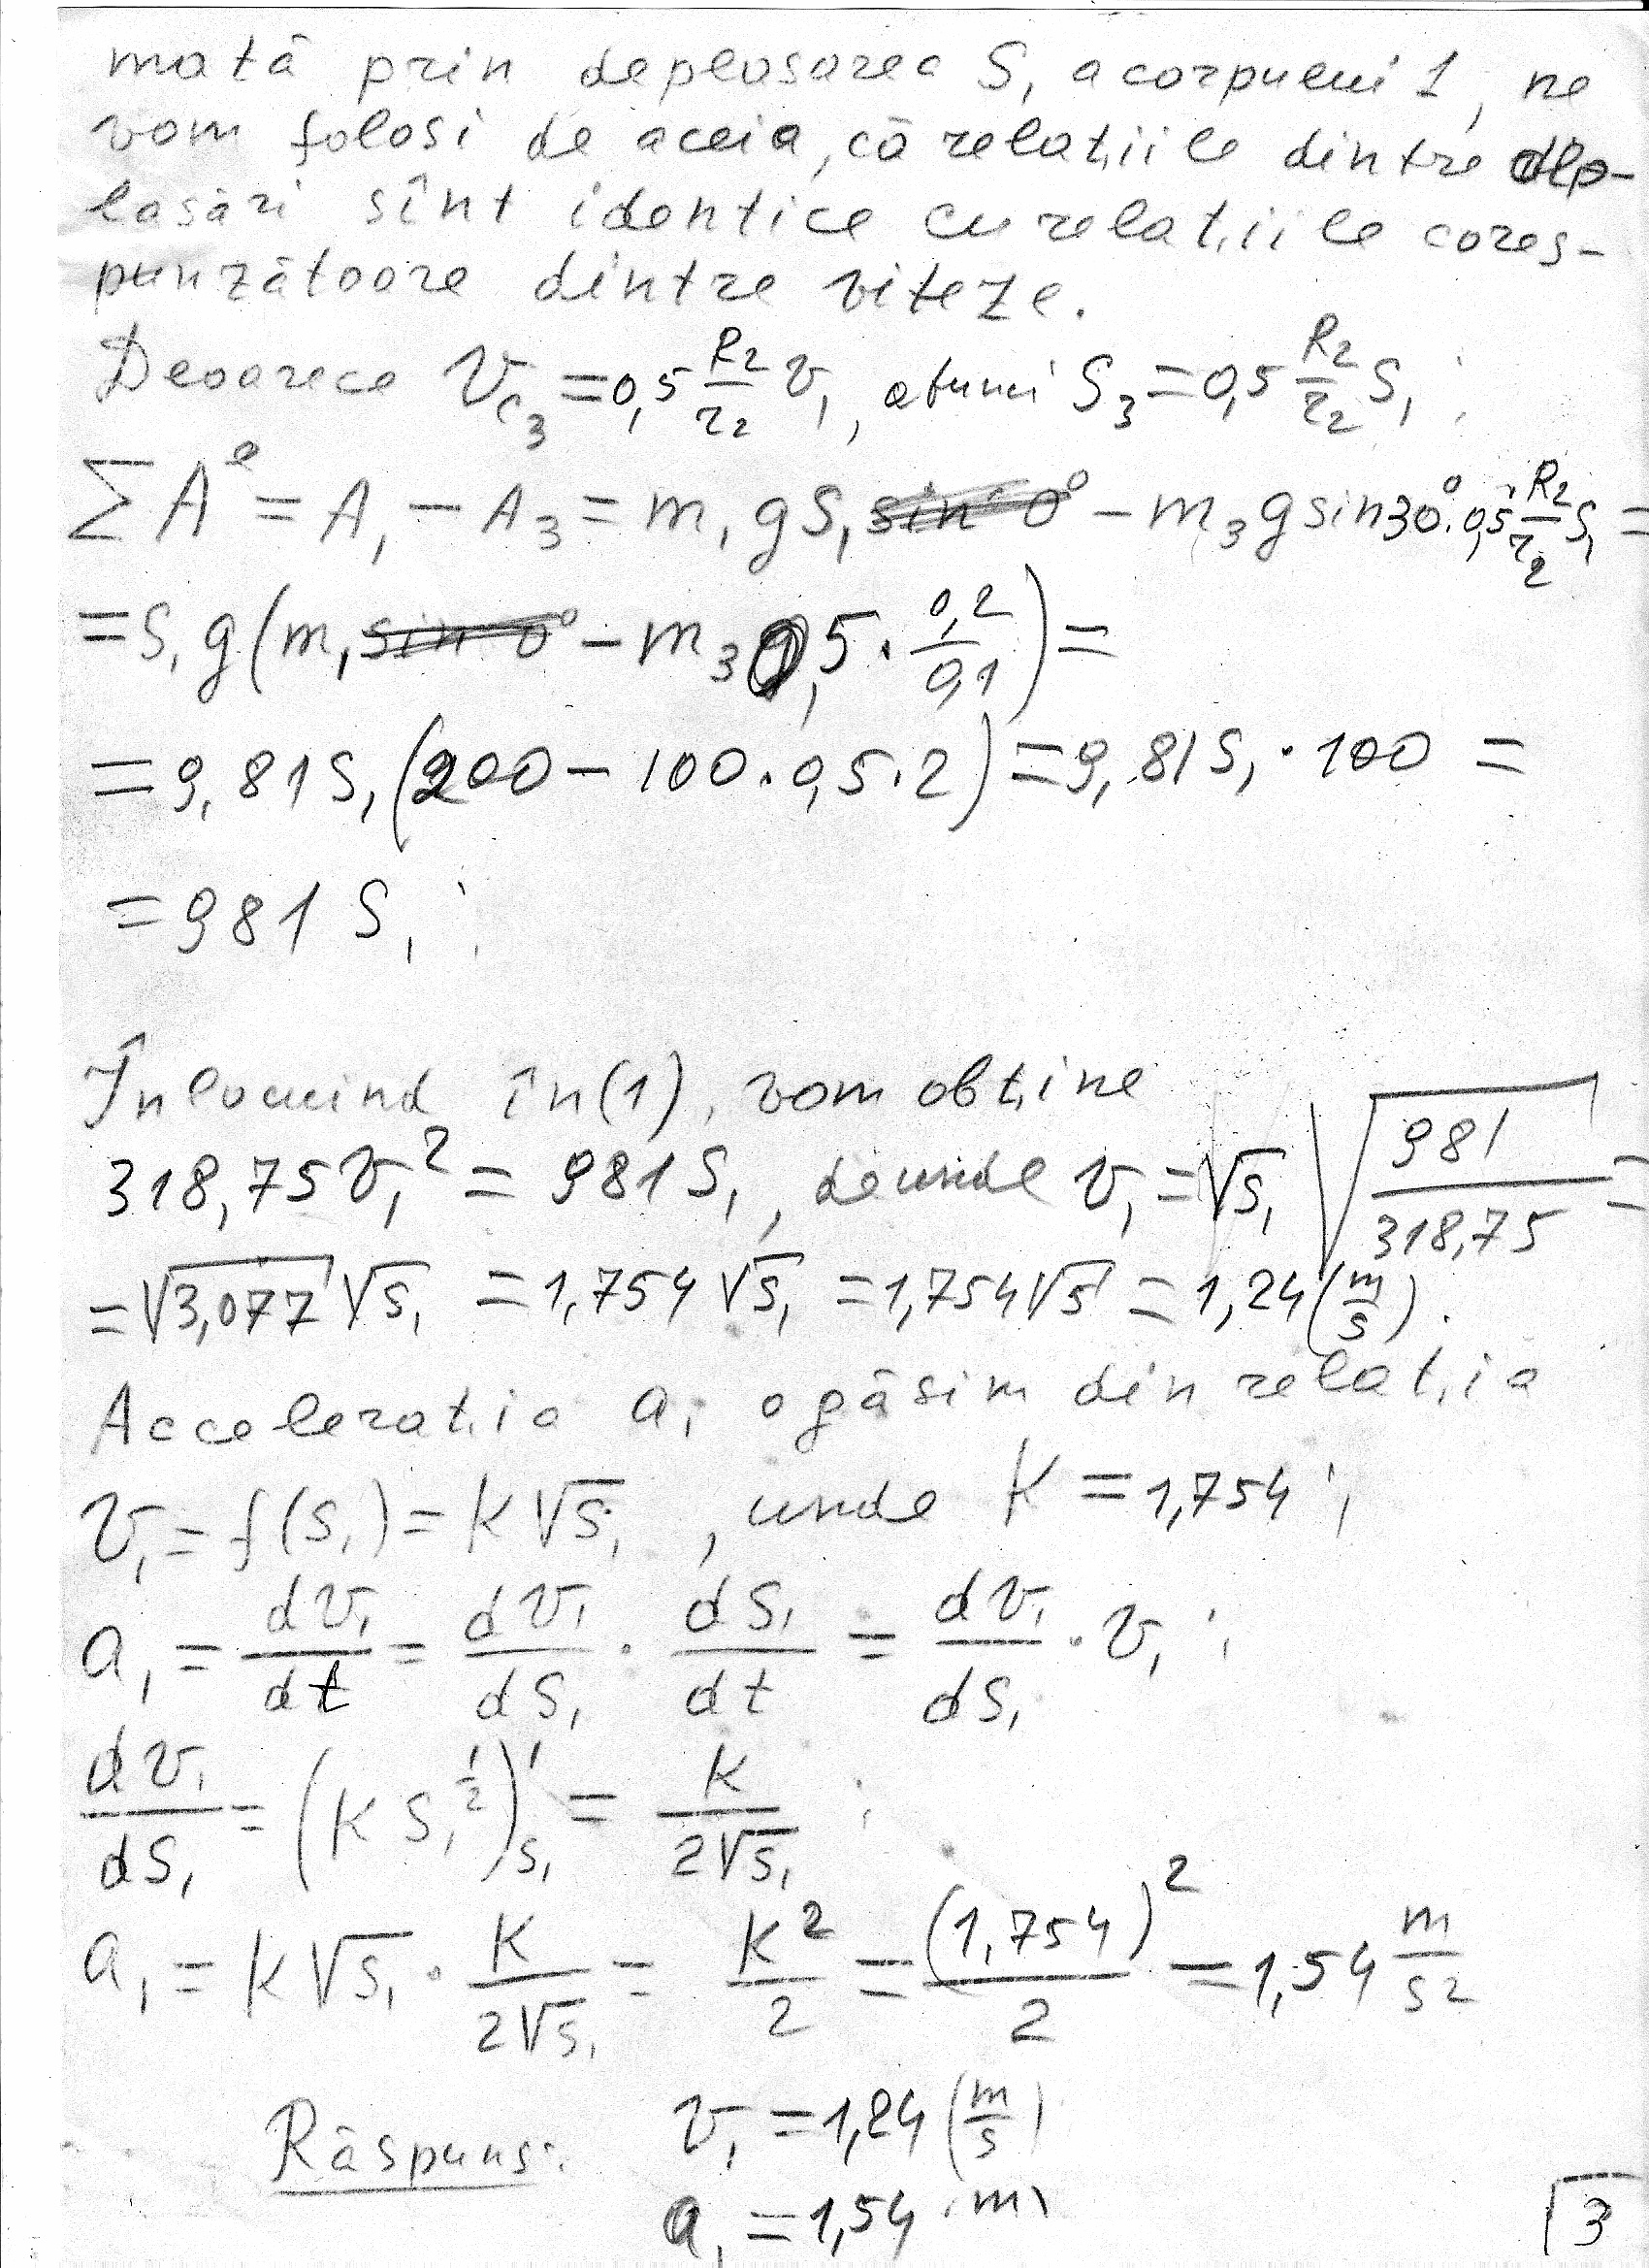 mată prin deplasarea S₁ a corpului 1, ne
vom folosi de aceia, că relațiile dintre dep-
lasări sînt identice cu relațiile cores-
punzătoare dintre viteze.
Deoarece V_C₃ = 0,5 R₂/r₂ v₁, atunci S₃ = 0,5 R₂/r₂ S₁;
∑Aᵉ = A₁ − A₃ = m₁gS₁ − m₃g sin30°·0,5 R₂/r₂ S₁ =
= S₁g(m₁ − m₃ 0,5 · 0,2/0,1) =
= 9,81 S₁(200 − 100·0,5·2) = 9,81 S₁·100 =
= 981 S₁;
Înlocuind în (1), vom obține
318,75 v₁² = 981 S₁, de unde v₁ = √S₁ √(981/318,75) =
= √3,077 √S₁ = 1,754 √S₁ = 1,754 √5 = 1,24 (m/s).
Accelerația a₁ o găsim din relația
v₁ = f(S₁) = K√S₁, unde K = 1,754;
a₁ = dv₁/dt = dv₁/dS₁ · dS₁/dt = dv₁/dS₁ · v₁;
dv₁/dS₁ = (K S₁^½)'_S₁ = K/2√S₁;
a₁ = K√S₁ · K/2√S₁ = K²/2 = (1,754)²/2 = 1,54 m/s²
Răspuns: v₁ = 1,24 (m/s)
a₁ = 1,54 m
3